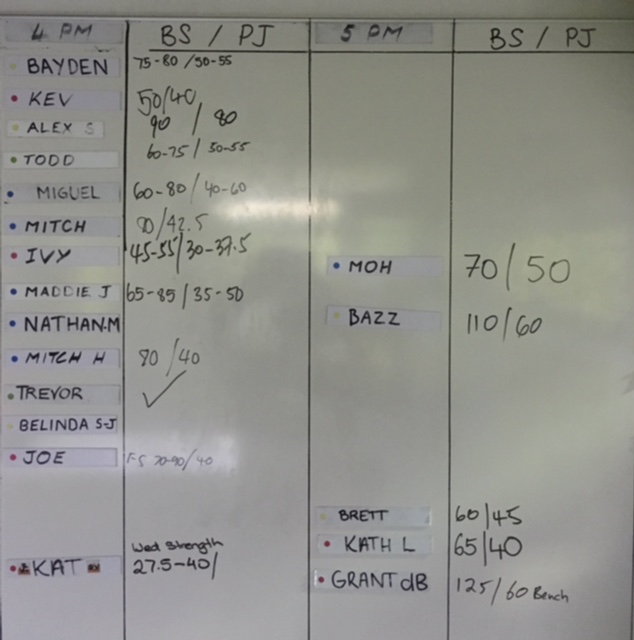 4 PM BS / PJ 5 PM BS / PJ
BAYDEN 75-80 / 50-55
KEV 50/40
ALEX S 90 / 80
TODD 60-75 / 50-55
MIGUEL 60-80 / 40-60
MITCH 80/42.5
IVY 45-55/30-37.5
MOH 70/50
MADDIE J 65-85 / 35-50
NATHAN.M
BAZZ 110/60
MITCH H 80 / 40
TREVOR ✓
BELINDA S-J
JOE FS 70-90/ 40
BRETT 60/45
KATH L 65/40
Wed Strength
KAT 27.5-40/
GRANT dB 125/60 Bench